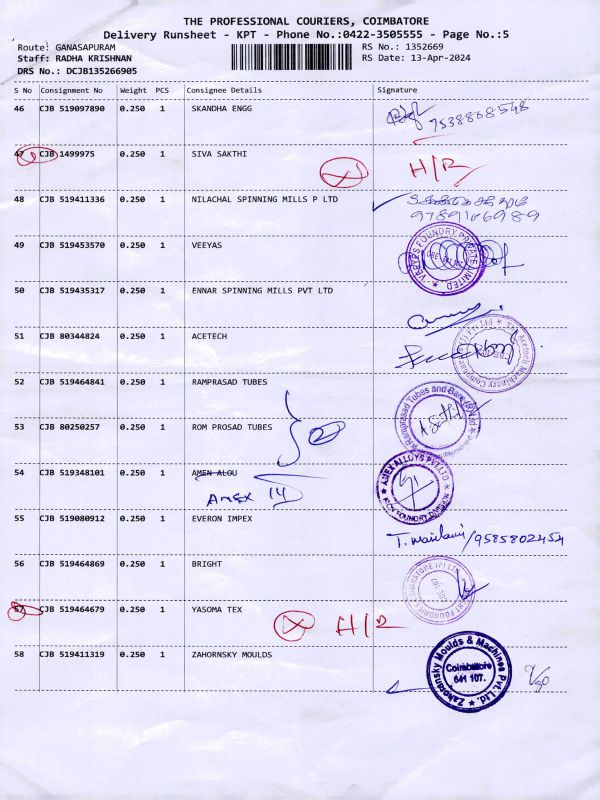 THE PROFESSIONAL COURIERS, COIMBATORE
Delivery Runsheet - KPT - Phone No.:0422-3505555 - Page No.:5
Route: GANASAPURAM
RS No.: 1352669
Staff: RADHA KRISHNAN
RS Date: 13-Apr-2024
DRS No.: DCJB135266905
S No Consignment No Weight PCS Consignee Details Signature
46 CJB 519097890 0.250 1 SKANDHA ENGG
9538868548
47 CJB 1499975 0.250 1 SIVA SAKTHI H/R
48 CJB 519411336 0.250 1 NILACHAL SPINNING MILLS P LTD
9789106989
49 CJB 519453570 0.250 1 VEEYAS
VEEYES FOUNDRY PRIVATE LIMITED
50 CJB 519435317 0.250 1 ENNAR SPINNING MILLS PVT LTD
51 CJB 80344824 0.250 1 ACETECH
52 CJB 519464841 0.250 1 RAMPRASAD TUBES
Ramprasad Tubes and Bars
53 CJB 80250257 0.250 1 ROM PROSAD TUBES
2
54 CJB 519348101 0.250 1 AMEN ALOU
AMEX ALLOYS PVT LTD
AMEX
55 CJB 519080912 0.250 1 EVERON IMPEX
9585802454
56 CJB 519464869 0.250 1 BRIGHT
57 CJB 519464679 0.250 1 YASOMA TEX H/R
58 CJB 519411319 0.250 1 ZAHORNSKY MOULDS
Zahoransky Moulds & Machines Pvt. Ltd.
Coimbatore
641 107.